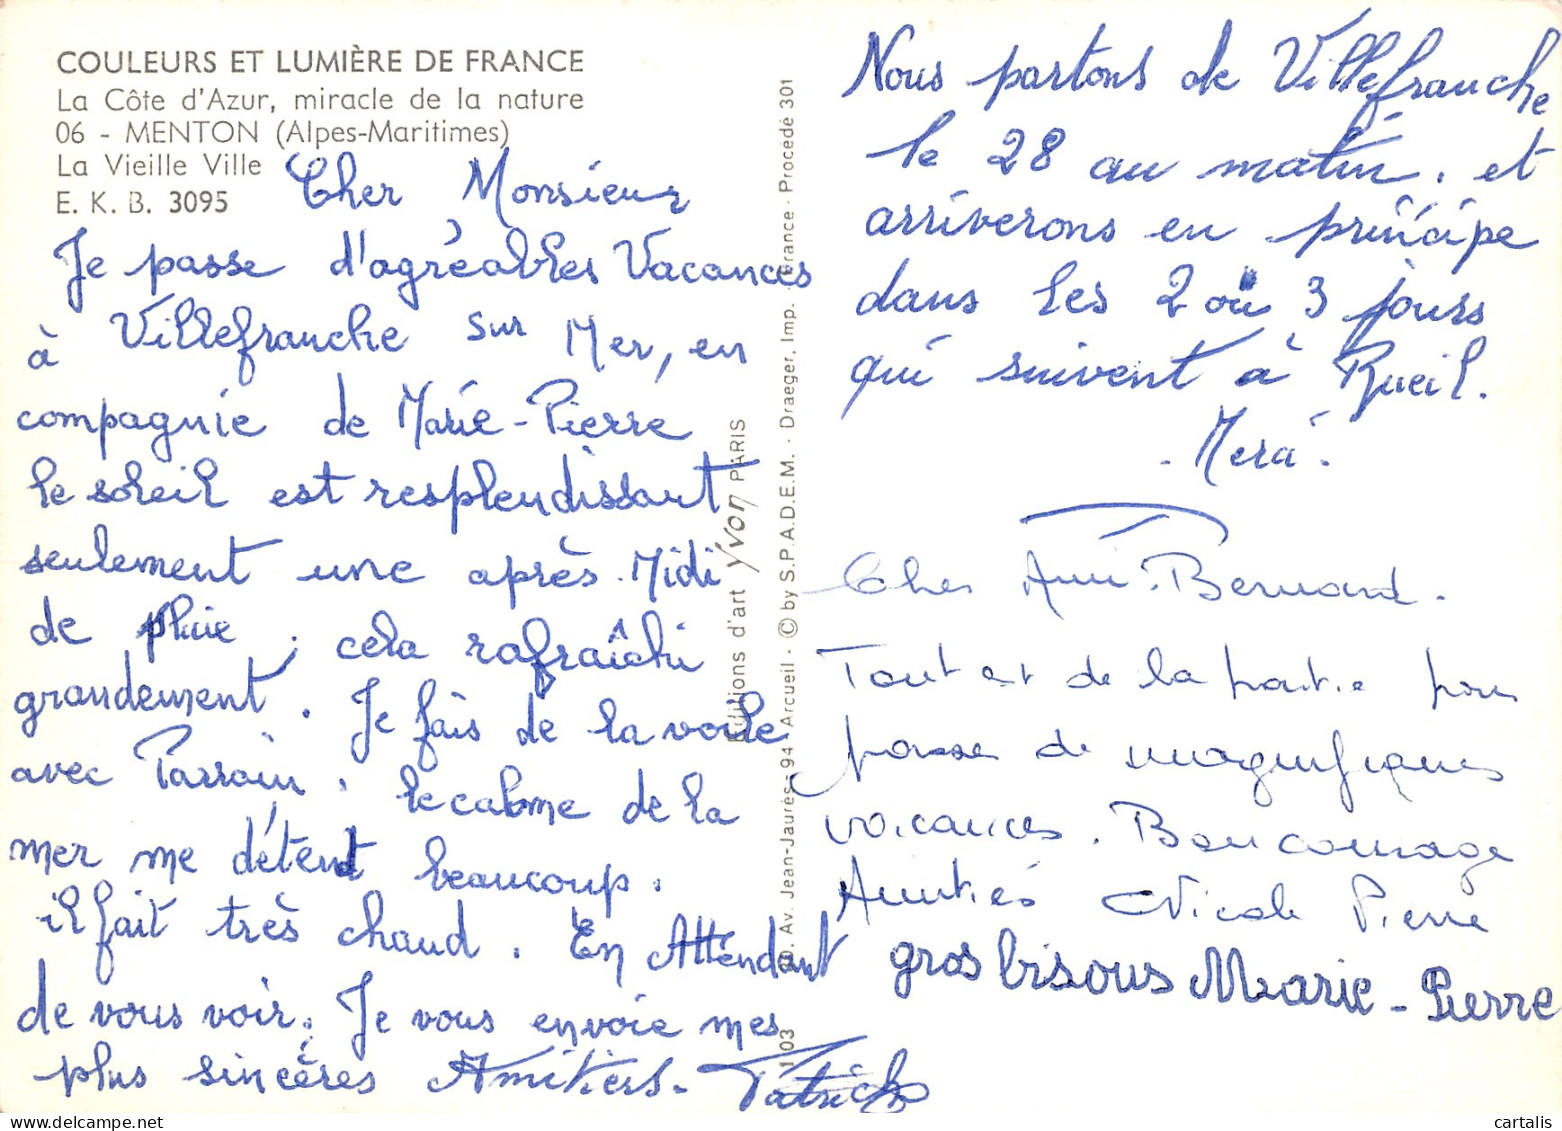 COULEURS ET LUMIÈRE DE FRANCE
La Côte d'Azur, miracle de la nature
06 - MENTON (Alpes-Maritimes)
La Vieille Ville
E. K. B. 3095
Cher Monsieur
Je passe d'agréables Vacances
à Villefranche sur Mer, en
compagnie de Marie-Pierre
le soleil est resplendissant
seulement une après-Midi
de pluie, cela rafraîchi
grandement. Je fais de la voile
avec Parrain. le calme de la
mer me détend beaucoup.
il fait très chaud. En Attendant
de vous voir, Je vous envoie mes
plus sincères Amitiers. Patrick
Editions d'art Yvon PARIS
Av. Jean-Jaurès - 94 - Arcueil - © by S.P.A.D.E.M. - Draeger, Imp. - France - Procédé 301
Nous partons de Villefranche
le 28 au matin. et
arriverons en principe
dans les 2 ou 3 jours
qui suivent à Rueil.
Cher Ami Bernard.
Tout est de la partie pour
passer de magnifiques
vacances. Bon courage
Amitiés Nicole Pierre
gros bisous Marie-Pierre